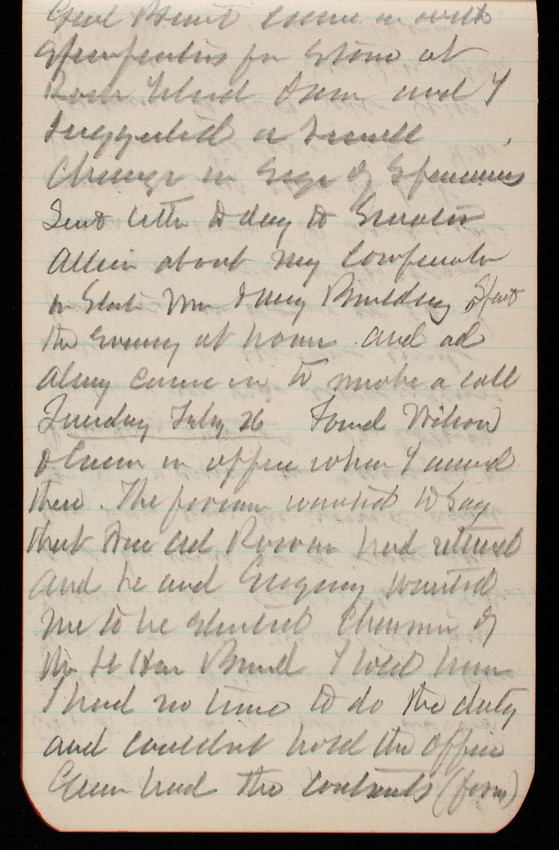 Genl came in with
for Stone at
Rock Island Dam and I
suggested a small
change in size of Specimens
Sent letter to day to Senator
about my
in State War & Navy Building Spent
the evening at home and
came in to make a call
Tuesday Feby 26 Found Wilson
& Green in office when I arrived
there. The former wanted to say
that had retired
and he and Gregory wanted
me to be elected Chairman of
the Lt House Board I told him
I had no time to do the duty
and couldn't hold the office
Green had the contracts (form)